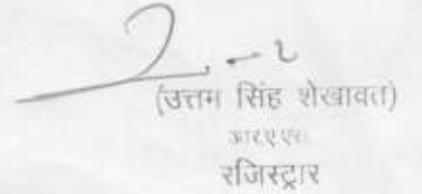 (उत्तम सिंह शेखावत)
आरएएस
रजिस्ट्रार